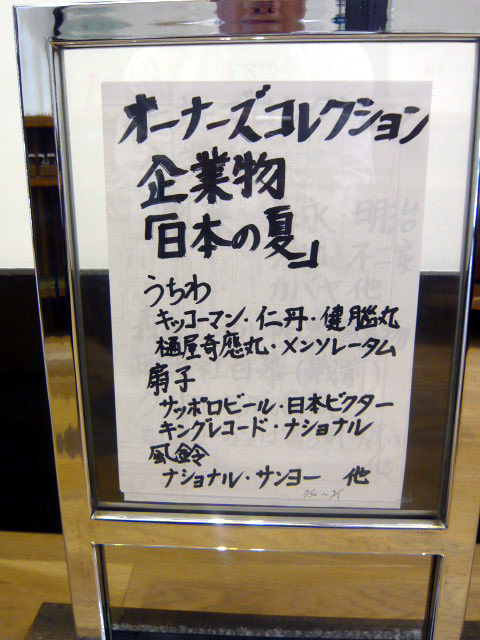 オーナーズコレクション
企業物
「日本の夏」
うちわ
キッコーマン・仁丹・健脳丸
樋屋奇應丸・メンソレータム
扇子
サッポロビール・日本ビクター
キングレコード・ナショナル
風鈴
ナショナル・サンヨー 他